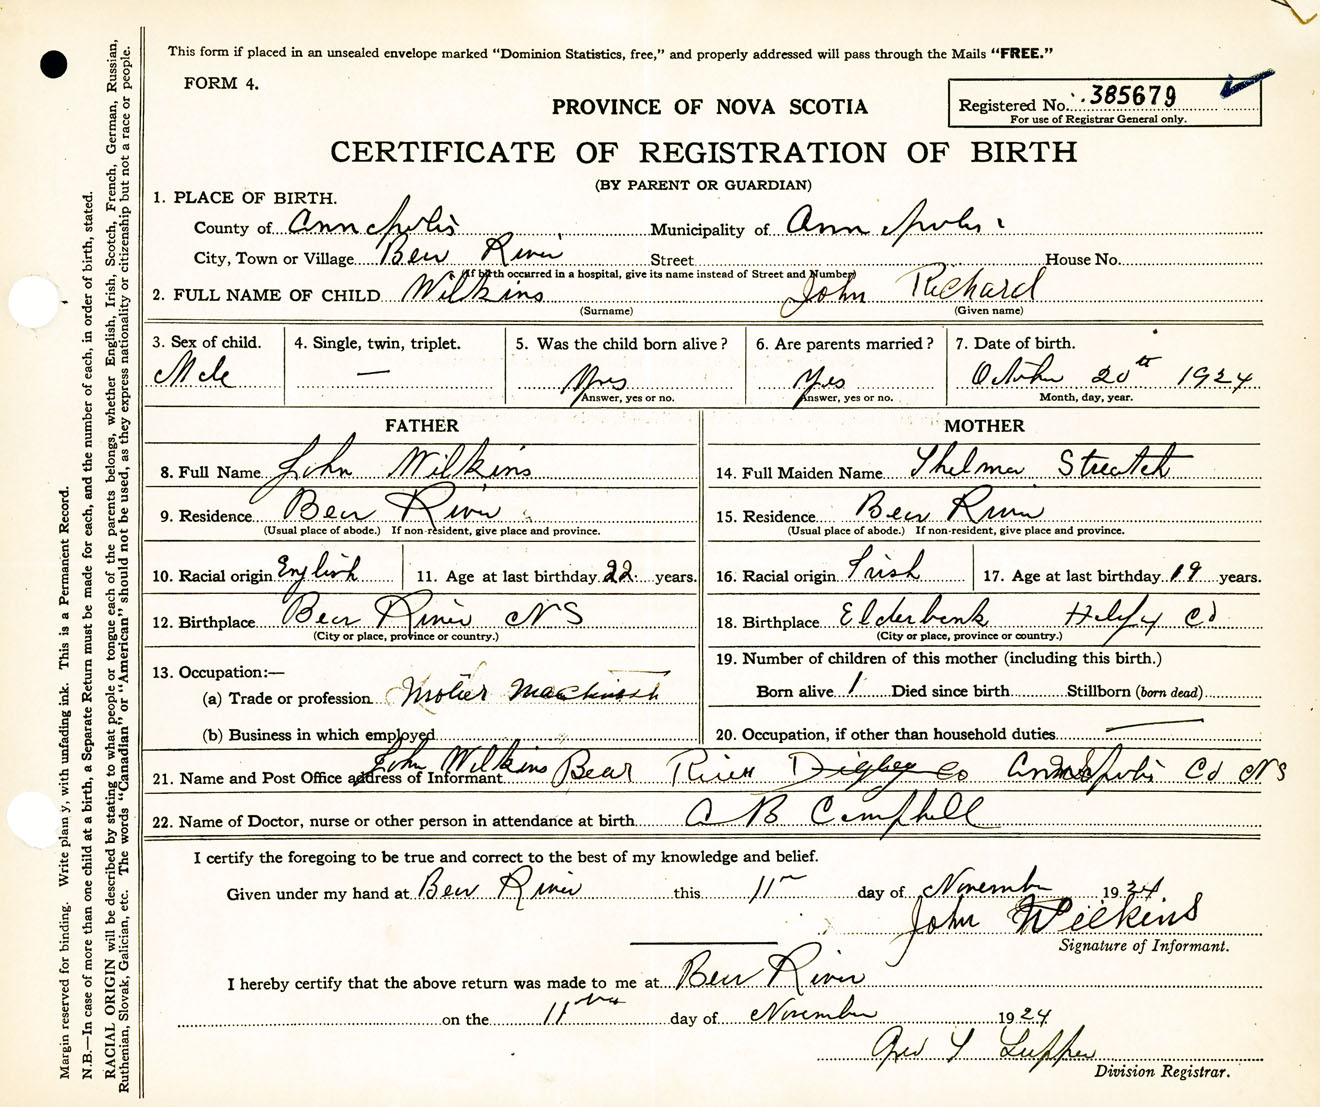 This form if placed in an unsealed envelope marked “Dominion Statistics, free,” and properly addressed will pass through the Mails “FREE.”
FORM 4.
PROVINCE OF NOVA SCOTIA
Registered No. 385679
For use of Registrar General only.
CERTIFICATE OF REGISTRATION OF BIRTH
(BY PARENT OR GUARDIAN)
1. PLACE OF BIRTH.
County of Annapolis Municipality of Annapolis
City, Town or Village Bear River Street House No.
(If birth occurred in a hospital, give its name instead of Street and Number)
2. FULL NAME OF CHILD Wilkins John Richard
(Surname) (Given name)
3. Sex of child. 4. Single, twin, triplet. 5. Was the child born alive? 6. Are parents married? 7. Date of birth.
Male — Yes Yes October 20th 1924
Answer, yes or no. Answer, yes or no. Month, day, year.
FATHER MOTHER
8. Full Name John Wilkins 14. Full Maiden Name Thelma Streatch
9. Residence Bear River 15. Residence Bear River
(Usual place of abode.) If non-resident, give place and province. (Usual place of abode.) If non-resident, give place and province.
10. Racial origin English 11. Age at last birthday 22 years. 16. Racial origin Irish 17. Age at last birthday 19 years.
12. Birthplace Bear River NS 18. Birthplace Elderbank Halifx Cd
(City or place, province or country.) (City or place, province or country.)
13. Occupation:— 19. Number of children of this mother (including this birth.)
(a) Trade or profession Born alive 1 Died since birth Stillborn (born dead)
(b) Business in which employed 20. Occupation, if other than household duties —
21. Name and Post Office address of Informant John Wilkins Bear River Digby Co Annapolis Cd NS
22. Name of Doctor, nurse or other person in attendance at birth A B Campbell
I certify the foregoing to be true and correct to the best of my knowledge and belief.
Given under my hand at Bear River this 11th day of November 1924
John Wilkins
Signature of Informant.
I hereby certify that the above return was made to me at Bear River
on the 11th day of November 1924
Division Registrar.
Margin reserved for binding. Write plainly, with unfading ink. This is a Permanent Record.
N.B.—In case of more than one child at a birth, a Separate Return must be made for each, and the number of each, in order of birth, stated.
RACIAL ORIGIN will be described by stating to what people or tongue each of the parents belongs, whether English, Irish, Scotch, French, German, Russian,
Ruthenian, Slovak, Galician, etc. The words “Canadian” or “American” should not be used, as they express nationality or citizenship but not a race or people.